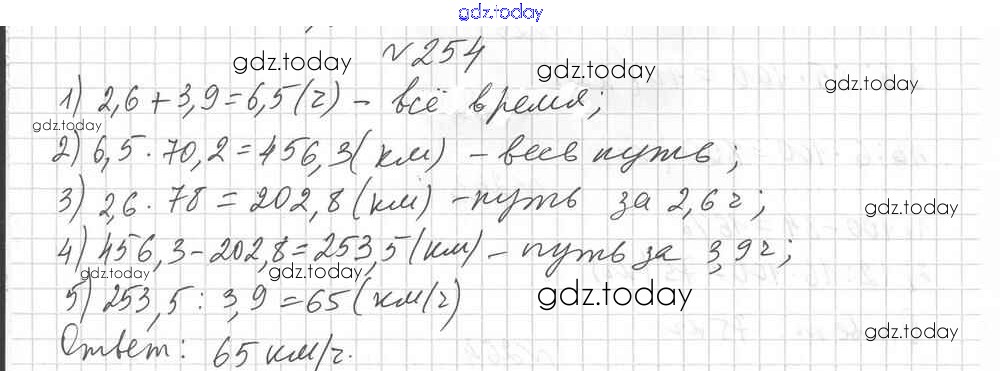 gdz.today
№ 254
gdz.today gdz.today gdz.today
1) 2,6 + 3,9 = 6,5 (ч) - всё время;
gdz.today
2) 6,5 · 70,2 = 456,3 (км) - весь путь;
3) 2,6 · 78 = 202,8 (км) - путь за 2,6 ч;
gdz.today
4) 456,3 - 202,8 = 253,5 (км) - путь за 3,9 ч;
gdz.today gdz.today
5) 253,5 : 3,9 = 65 (км/ч)
gdz.today
gdz.today
Ответ: 65 км/ч.